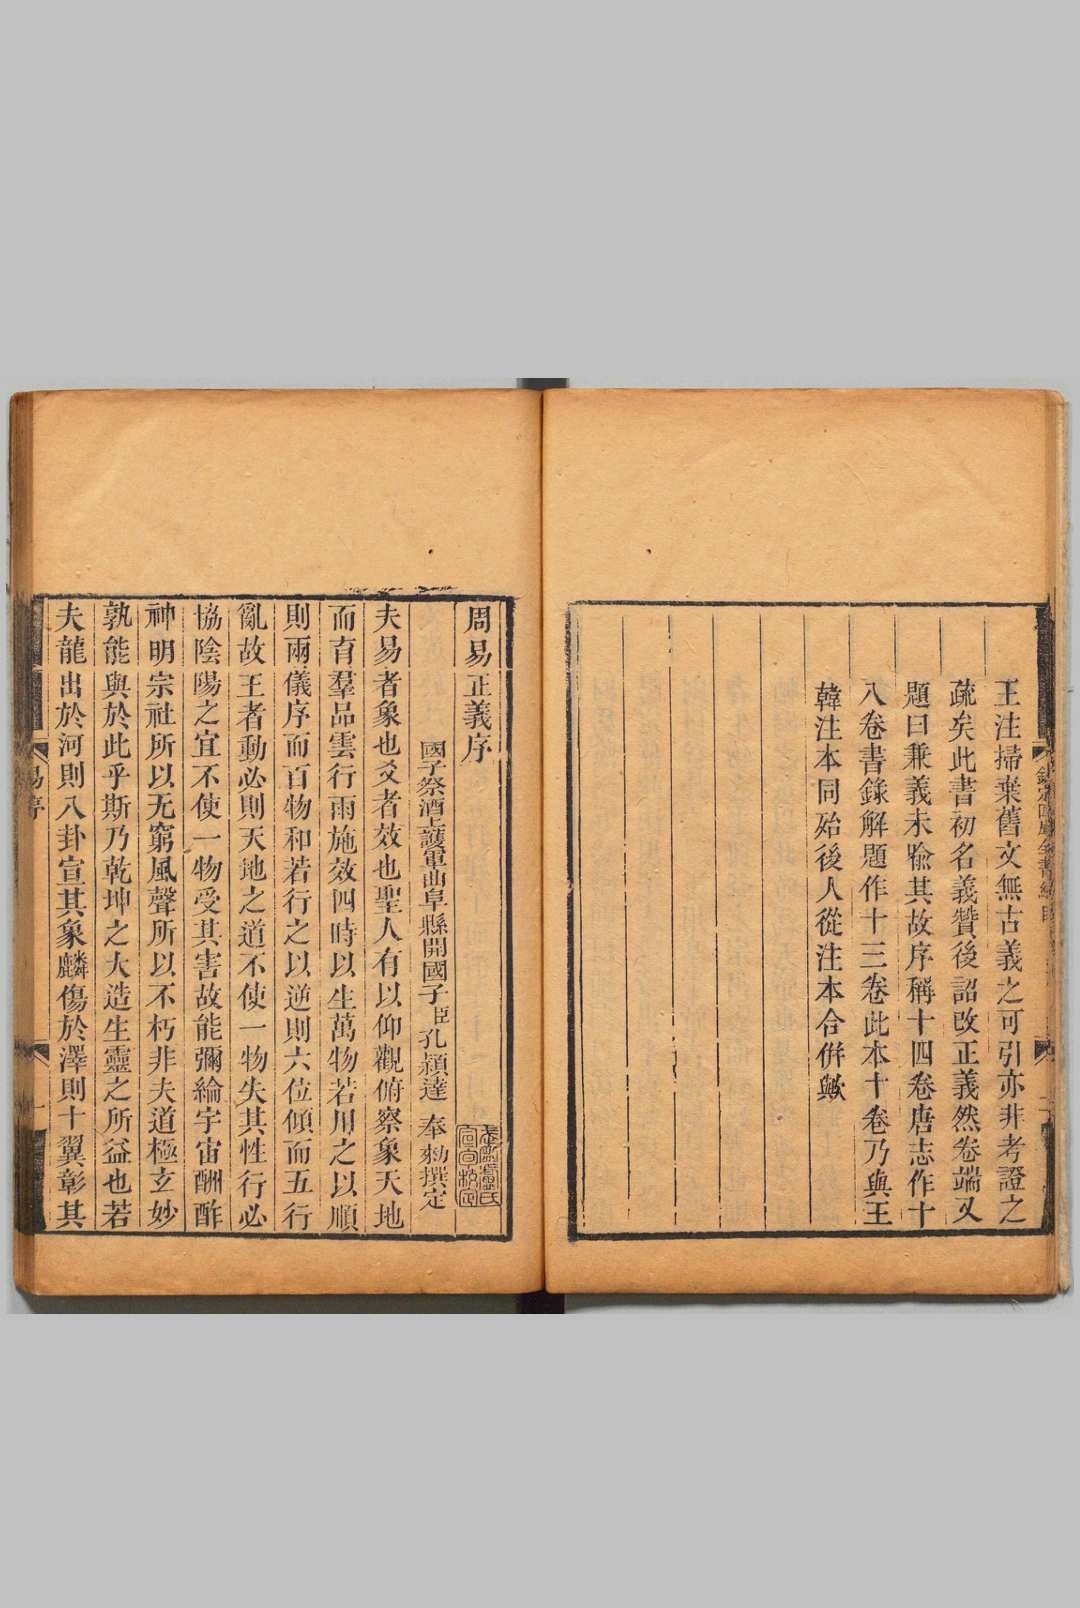 王注掃棄舊文無古義之可引亦非考證之
疏矣此書初名義贊後詔改正義然卷端又
題曰兼義未喻其故序稱十四卷唐志作十
八卷書錄解題作十三卷此本十卷乃與王
韓注本同殆後人從注本合併歟
周易正義序
國子祭酒上護軍曲阜縣開國子臣孔穎達 奉勑撰定
夫易者象也爻者效也聖人有以仰觀俯察象天地
而育羣品雲行雨施效四時以生萬物若用之以順
則兩儀序而百物和若行之以逆則六位傾而五行
亂故王者動必則天地之道不使一物失其性行必
協陰陽之宜不使一物受其害故能彌綸宇宙酬酢
神明宗社所以无窮風聲所以不朽非夫道極玄妙
孰能與於此乎斯乃乾坤之大造生靈之所益也若
夫龍出於河則八卦宣其象麟傷於澤則十翼彰其
易序
一